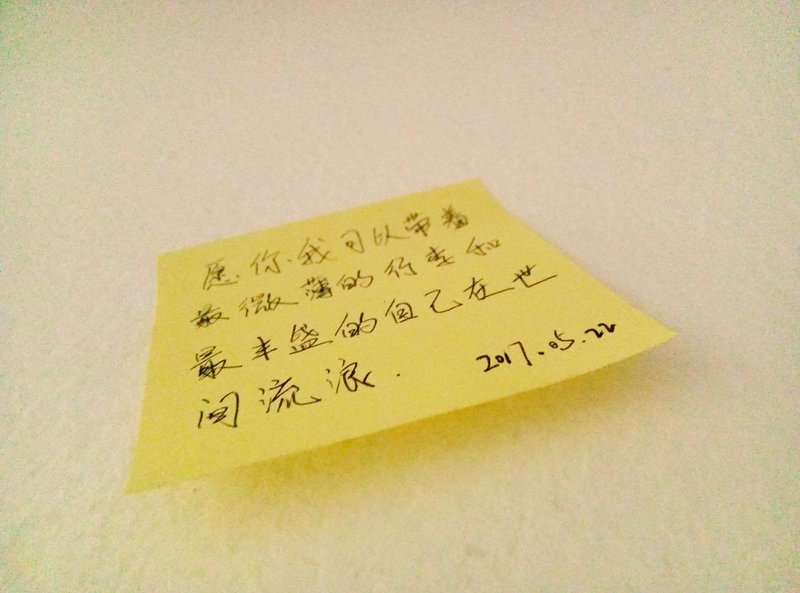 愿你我可以带着
最微薄的行李和
最丰盛的自己在世
间流浪.
2017.05.22